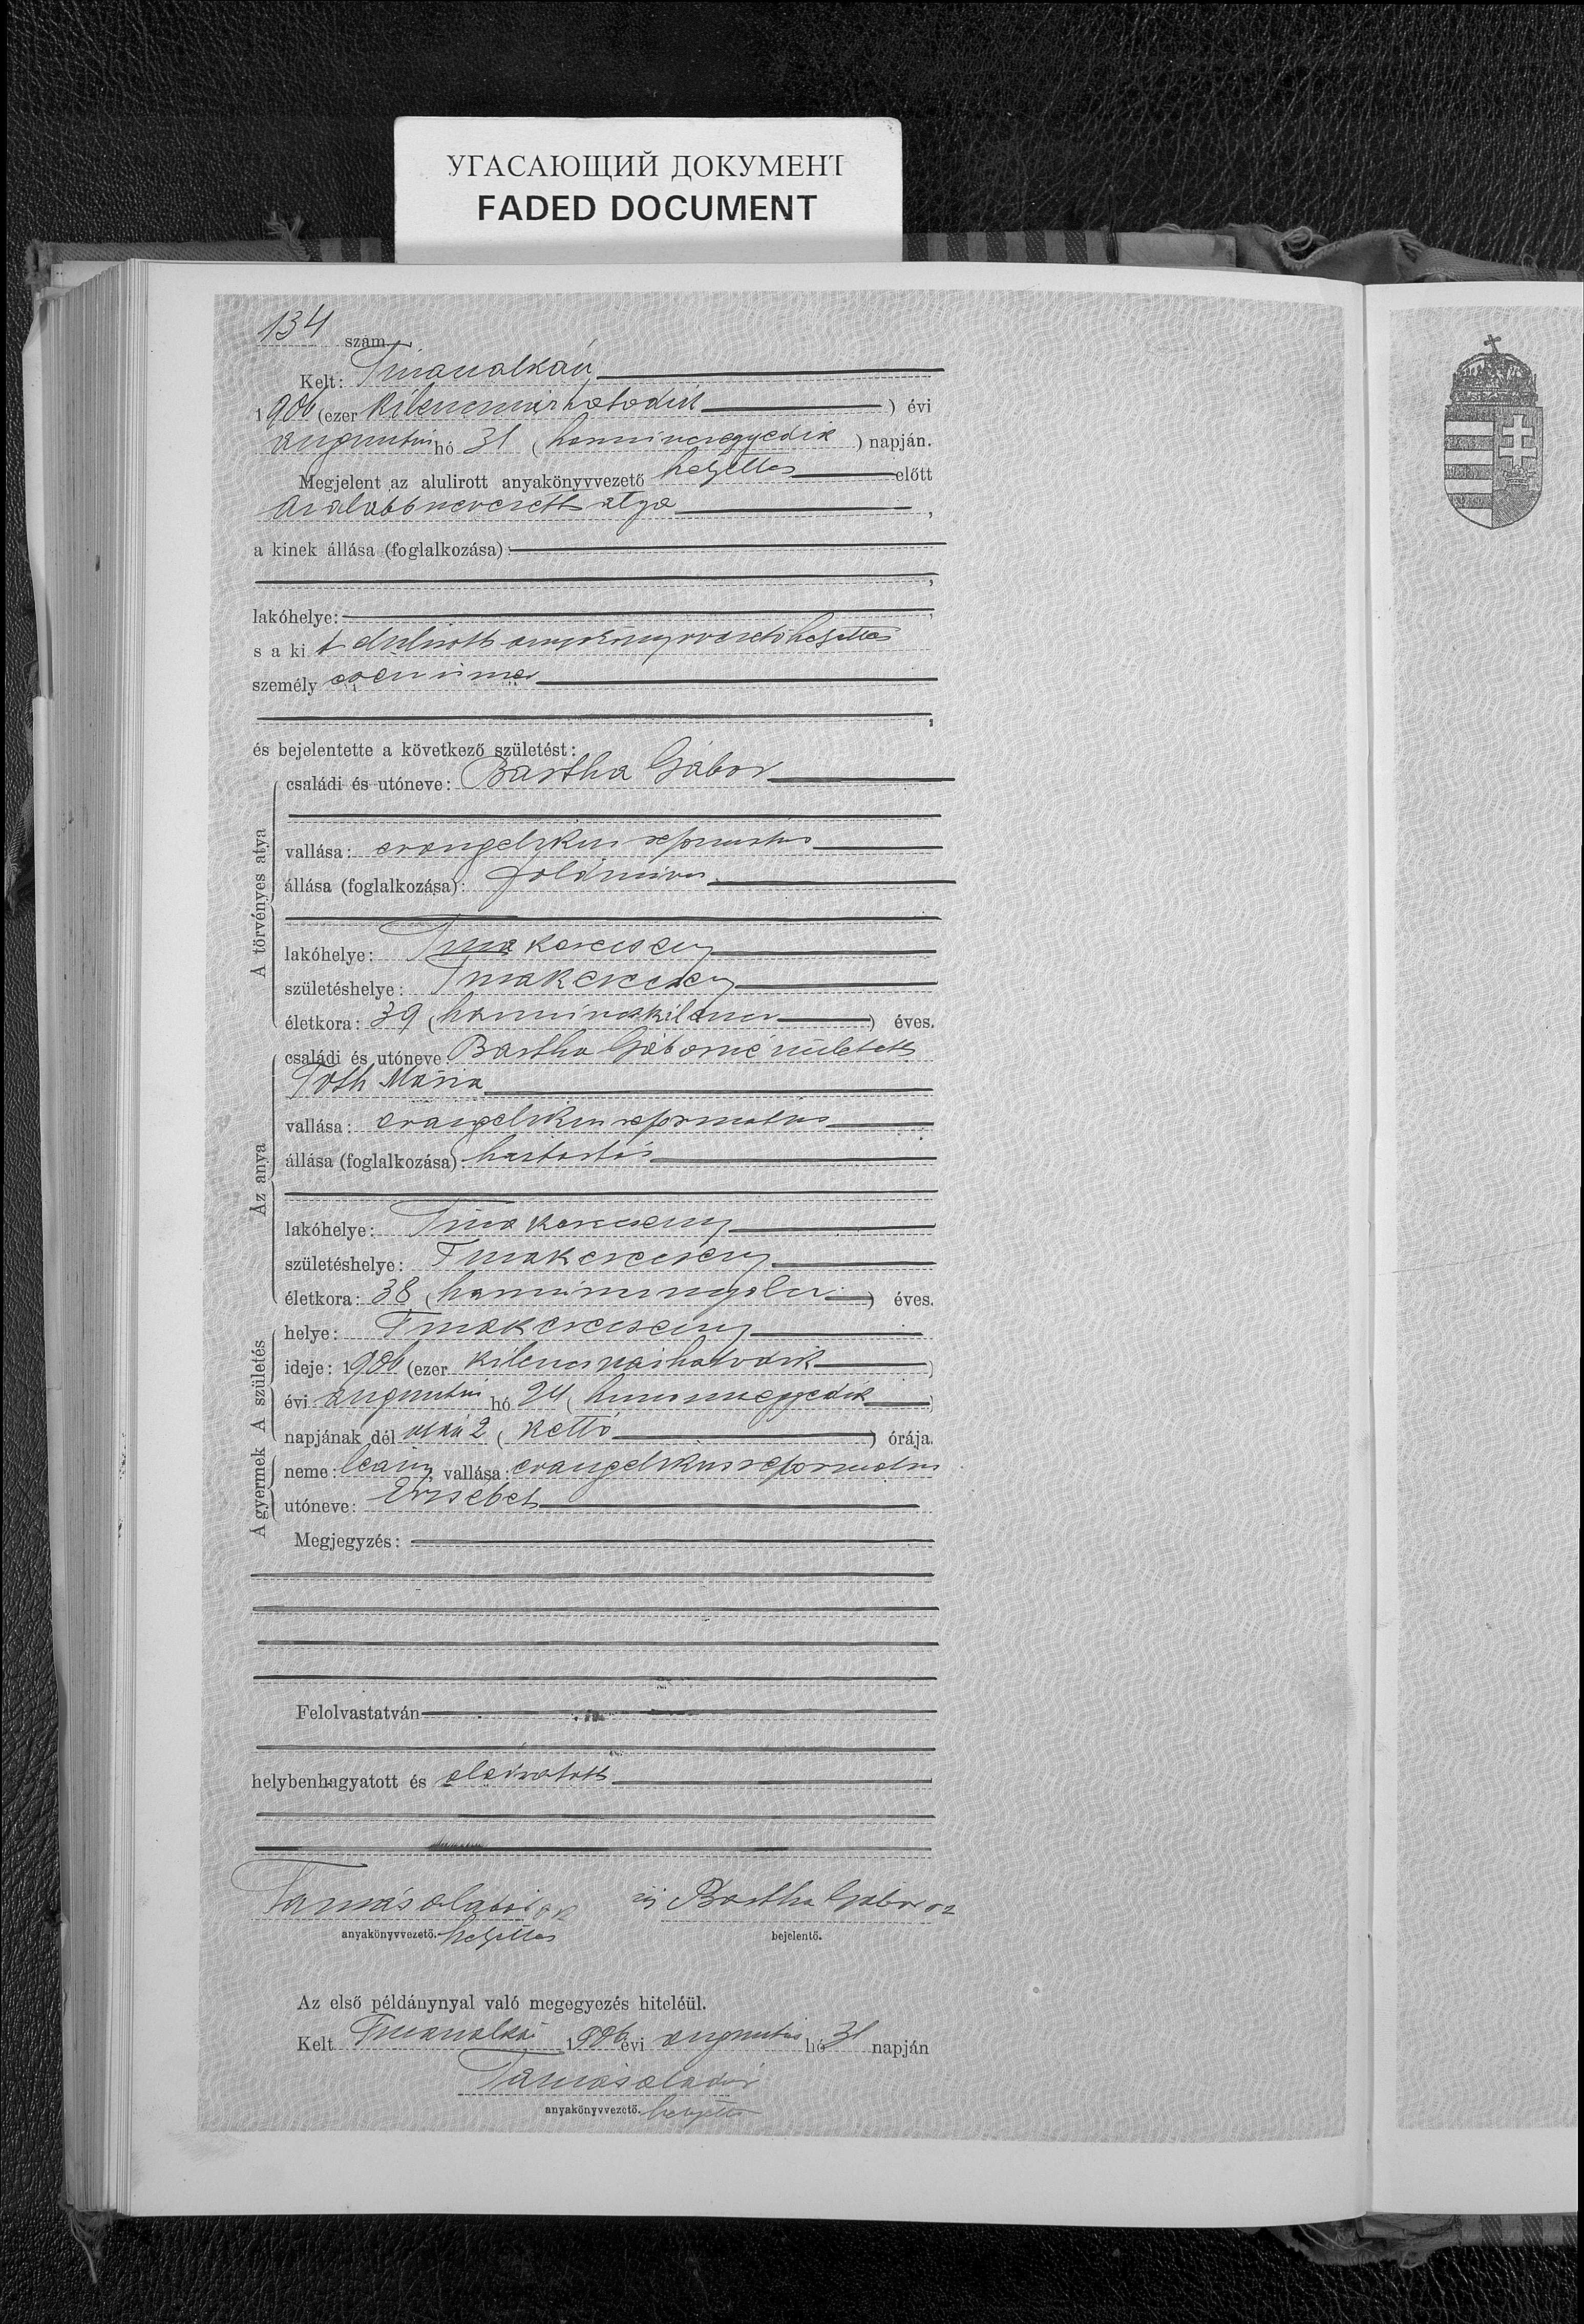 УГАСАЮЩИЙ ДОКУМЕНТ
FADED DOCUMENT
134 szám.
Kelt: Tiszaszalkán,
1906 (ezer kilencszázhatodik) évi
augusztus hó 31 (harmincegyedik) napján.
Megjelent az alulirott anyakönyvvezető helyettes előtt
az alább nevezett atya,
a kinek állása (foglalkozása):
lakóhelye:
s a ki t alulirott anyakönyvvezető helyettes
személy esen ismer
és bejelentette a következő születést:
A törvényes atya
családi és utóneve: Bartha Gábor
vallása: evangelikus reformatus
állása (foglalkozása): földmives
lakóhelye: Tiszakerecseny
születéshelye: Tiszakerecseny
életkora: 39 (harminczkilencz) éves.
Az anya
családi és utóneve: Bartha Gáborné született
Tóth Mária
vallása: evangelikus reformatus
állása (foglalkozása): háztartás
lakóhelye: Tiszakerecseny
születéshelye: Tiszakerecseny
életkora: 38 (harmincznyolcz) éves.
A születés
helye: Tiszakerecseny
ideje: 1906 (ezer kilenczszázhatodik)
évi augusztus hó 24 (huszonnegyedik)
napjának dél után 2 (kettő) órája.
A gyermek
neme: leány, vallása: evangelikus reformatus
utóneve: Erzsébet
Megjegyzés:
Felolvastatván
helybenhagyatott és aláiratott
Tamás Aladár sk ifj Bartha Gábor sk
anyakönyvvezető. helyettes bejelentő.
Az első példánynyal való megegyezés hiteléül.
Kelt 1906 évi augusztus hó 31 napján
Tamás Aladár
anyakönyvvezető. helyettes